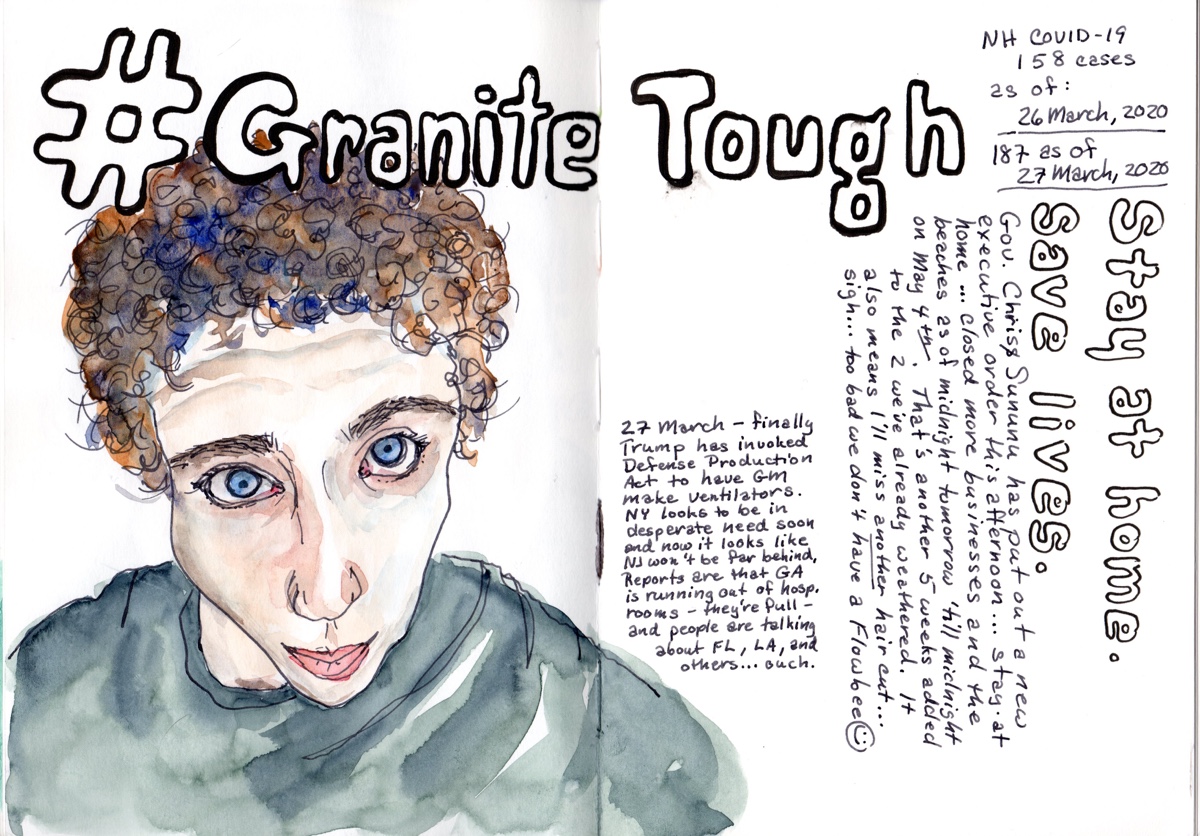 #Granite Tough
NH COVID-19
158 cases
as of:
26 March, 2020
187 as of
27 March, 2020
Stay at home.
Save lives.
Gov. Chris Sununu has put out a new
executive order this afternoon... stay-at
home... closed more businesses and the
beaches as of midnight tomorrow 'till midnight
on May 4th. That's another 5 weeks added
to the 2 we've already weathered. It
also means I'll miss another hair cut...
sigh... too bad we don't have a Flowbee
27 March - finally
Trump has invoked
Defense Production
Act to have GM
make ventilators.
NY looks to be in
desperate need soon
and now it looks like
NJ won't be far behind,
Reports are that GA
is running out of hosp.
rooms - they're full -
and people are talking
about FL, LA, and
others... ouch.